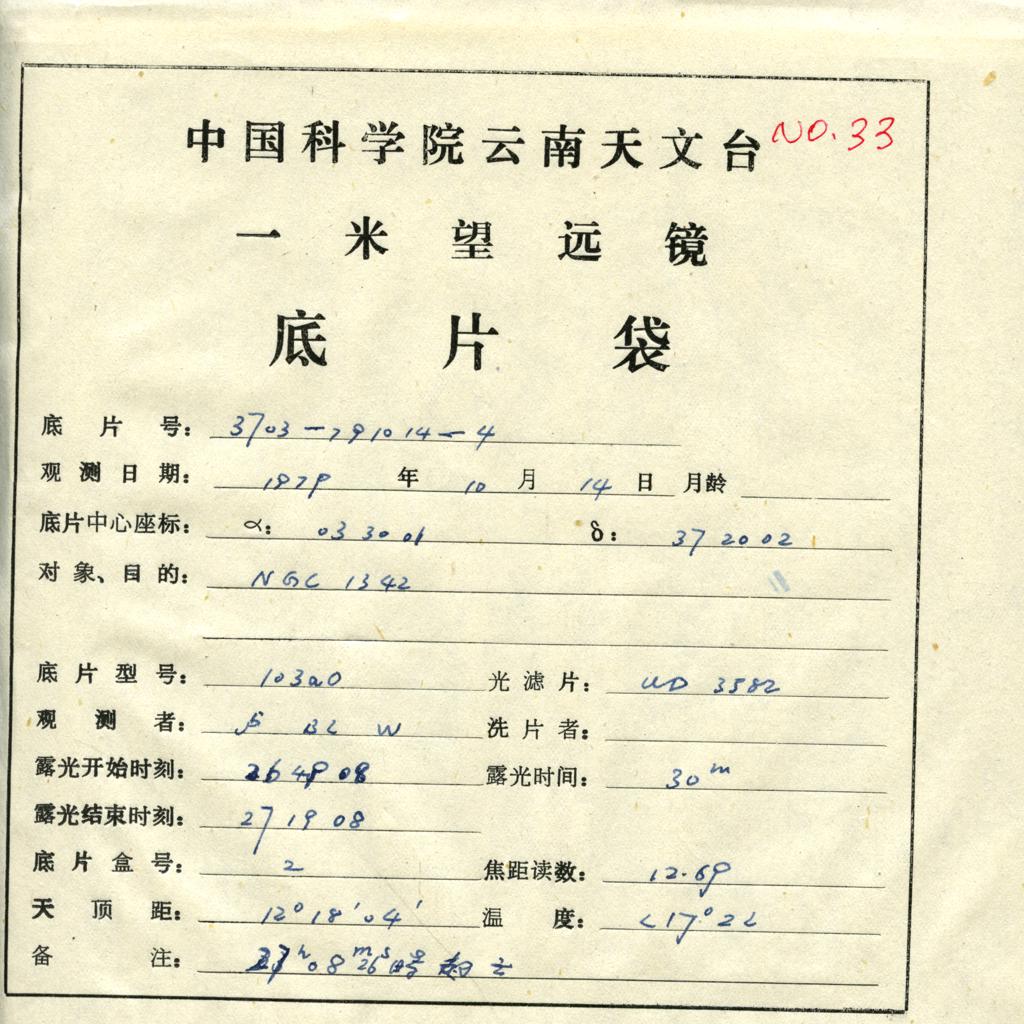 中国科学院云南天文台 NO.33
一米望远镜
底片袋
底片号: 3703-791014-4
观测日期: 1979 年 10 月 14 日 月龄
底片中心座标: α: 03 30 01 δ: 37 20 02
对象、目的: NGC 1342
底片型号: 103aO 光滤片:
观测者: BL W 洗片者:
露光开始时刻: 26 49 08 露光时间: 30m
露光结束时刻: 27 19 08
底片盒号: 2 焦距读数: 12.69
天顶距: 12° 18' 04' 温度: <17°22
备注: 27h 08m 26s 时 云